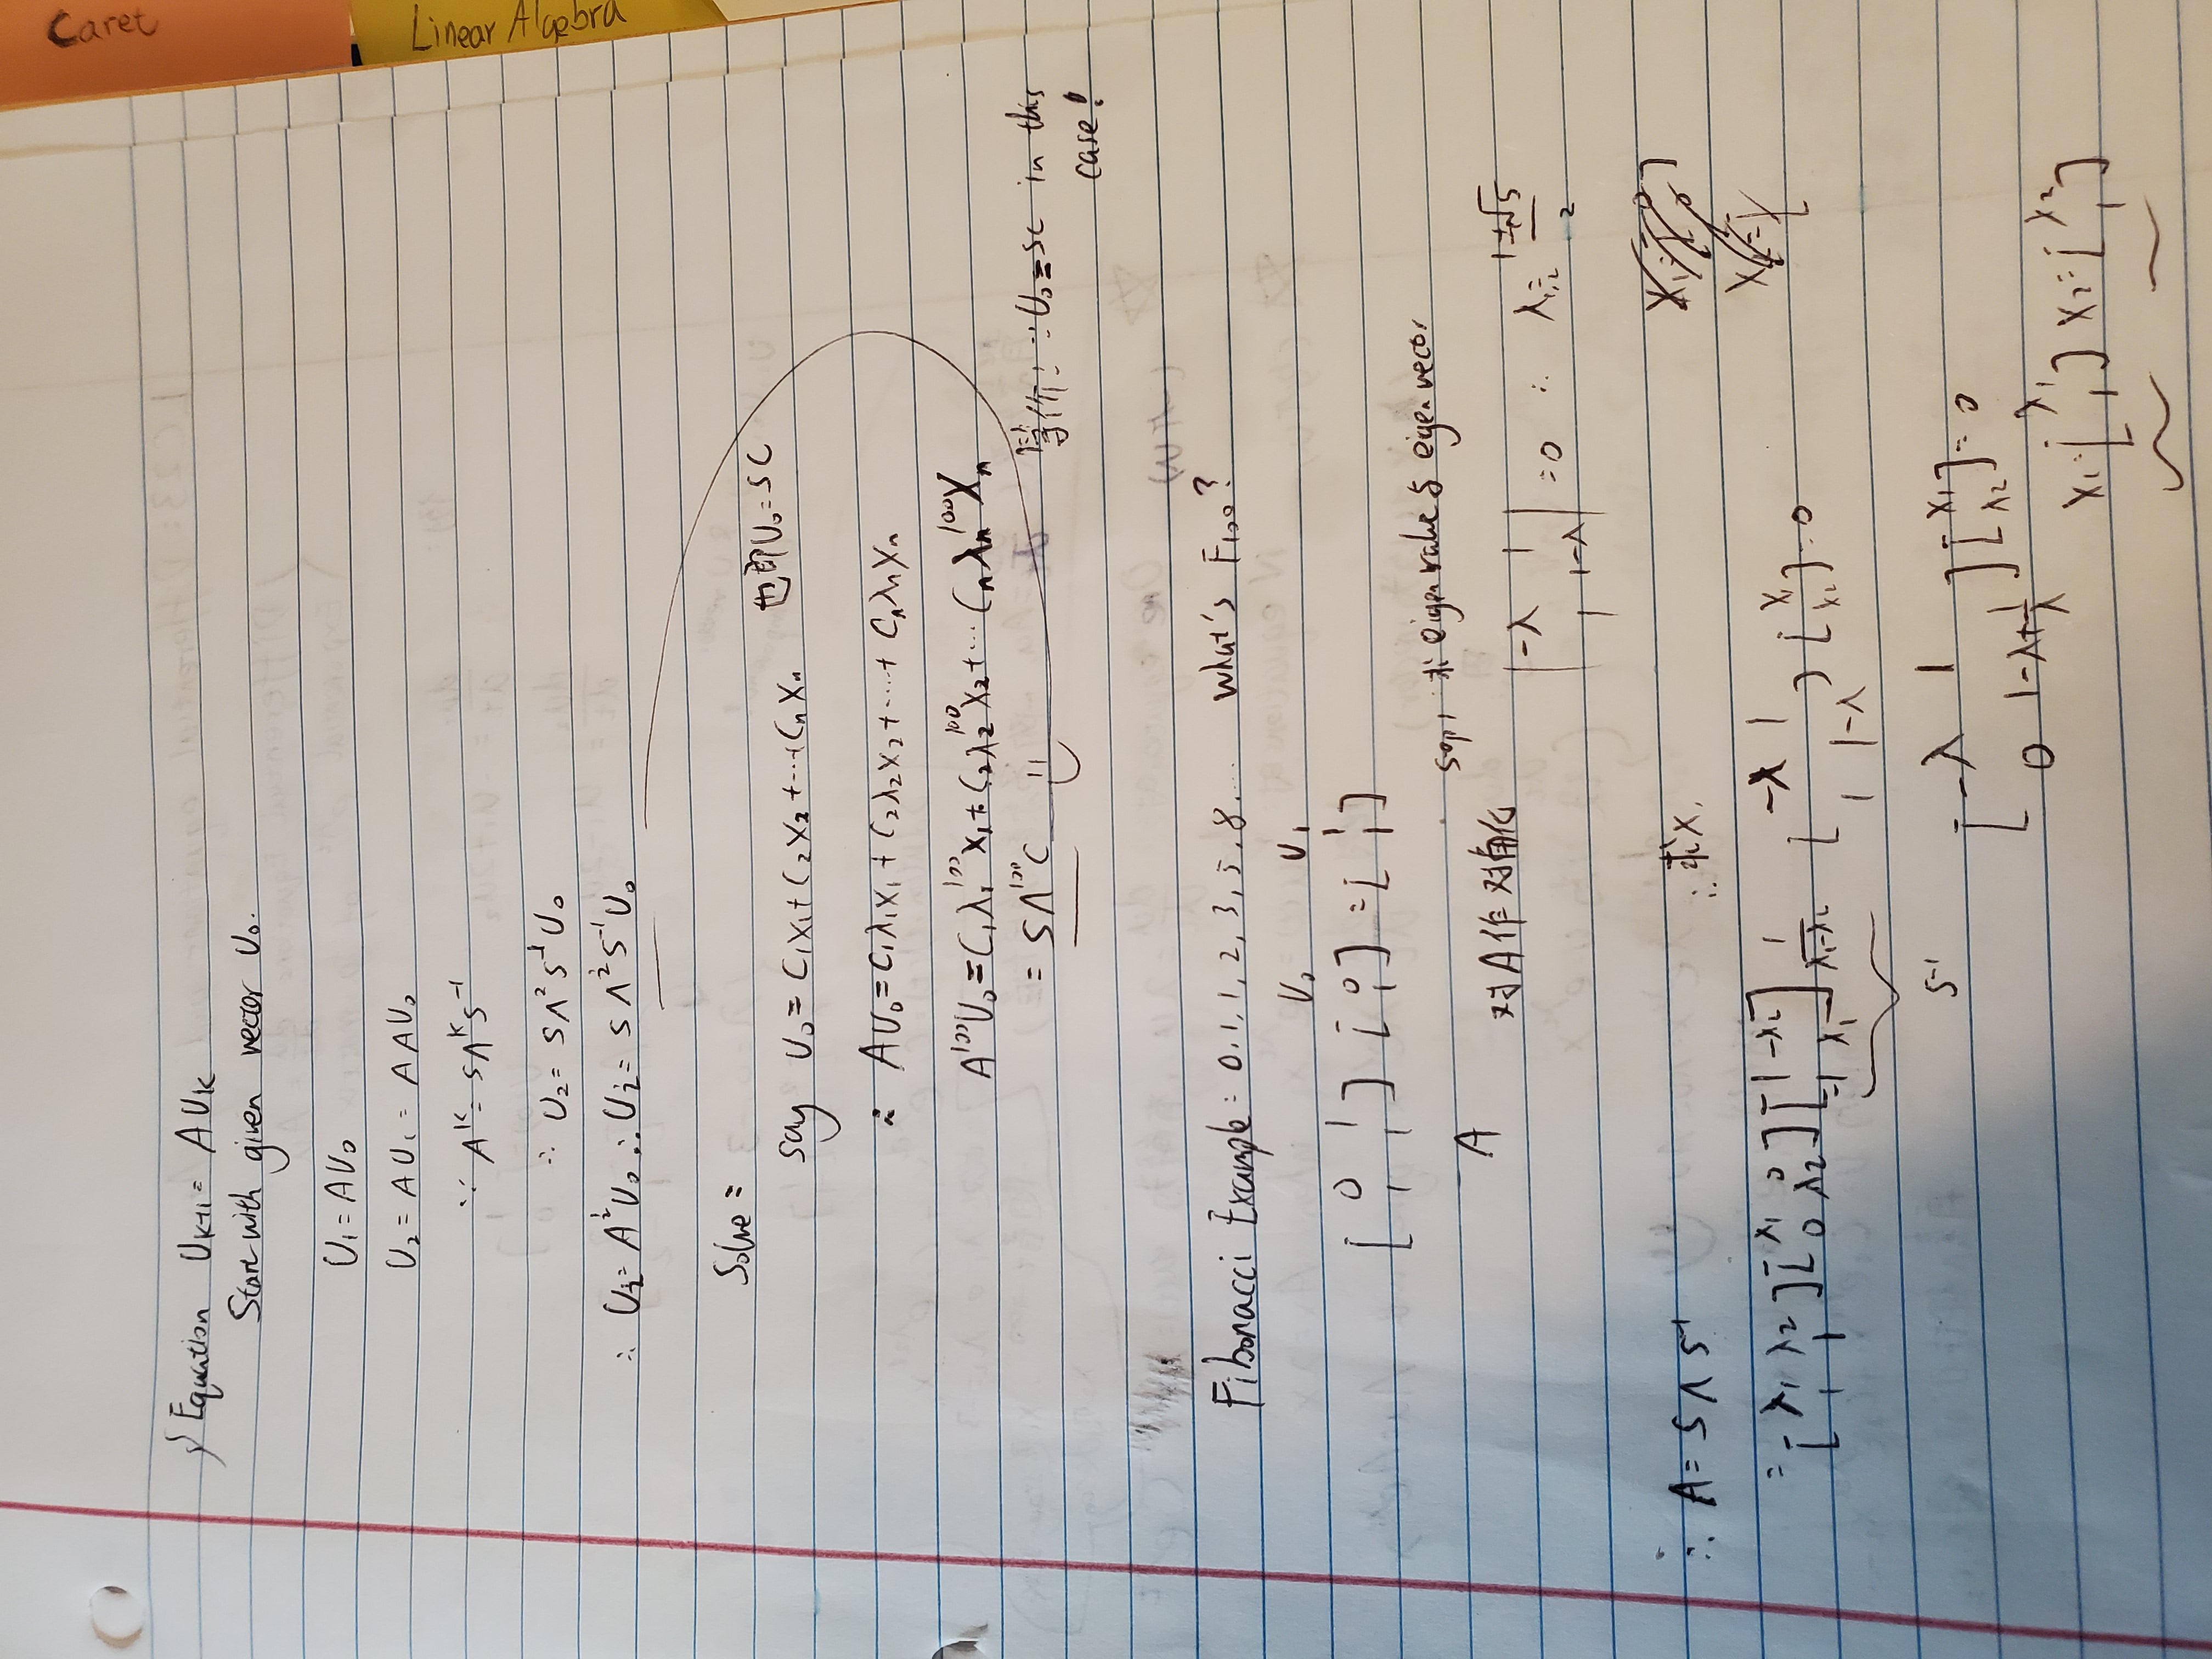 Caret
Linear Algebra
Equation U_{k+1} = AU_k
Start with given vector U₀.
U₁ = AU₀
U₂ = AU₁ = AAU₀
∵ A^k = SΛ^kS⁻¹
∴ U₂ = SΛ²S⁻¹U₀
∴ U_i = A^iU₀ ∴ U_i = SΛ^iS⁻¹U₀
Solve:
say U₀ = C₁X₁ + C₂X₂ + ... + CₙXₙ 也即U₀ = SC
∴ AU₀ = C₁λ₁X₁ + C₂λ₂X₂ + ... + CₙλₙXₙ
A¹⁰⁰U₀ = C₁λ₁¹⁰⁰X₁ + C₂λ₂¹⁰⁰X₂ + ... Cₙλₙ¹⁰⁰Xₙ
= SΛ¹⁰⁰C 等价! ∵ U₀ = SC in this
case!
Fibonacci Example: 0, 1, 1, 2, 3, 5, 8, ... what's F₁₀₀?
U₀ U₁
[0 1] [0] = [1]
[1 1] [1] [1]
A
对A作对角化
求eigenvalue & eigenvector
|-λ 1| = 0 ∴ λ₁,₂ = 1±√5
|1 1-λ| 2
∴ A = SΛS⁻¹ ∴ 求X,
= [λ₁ λ₂] [λ₁ 0] [1 -λ₂] 1 [-λ 1] [X₁] = 0
[1 1] [0 λ₂] [-1 λ₁] λ₁-λ₂ [1 1-λ] [X₂]
S⁻¹
[-λ 1] [X₁] = 0
[0 1-λ+1/λ] [X₂]
X₁ = [λ₁] X₂ = [λ₂]
[1] [1]